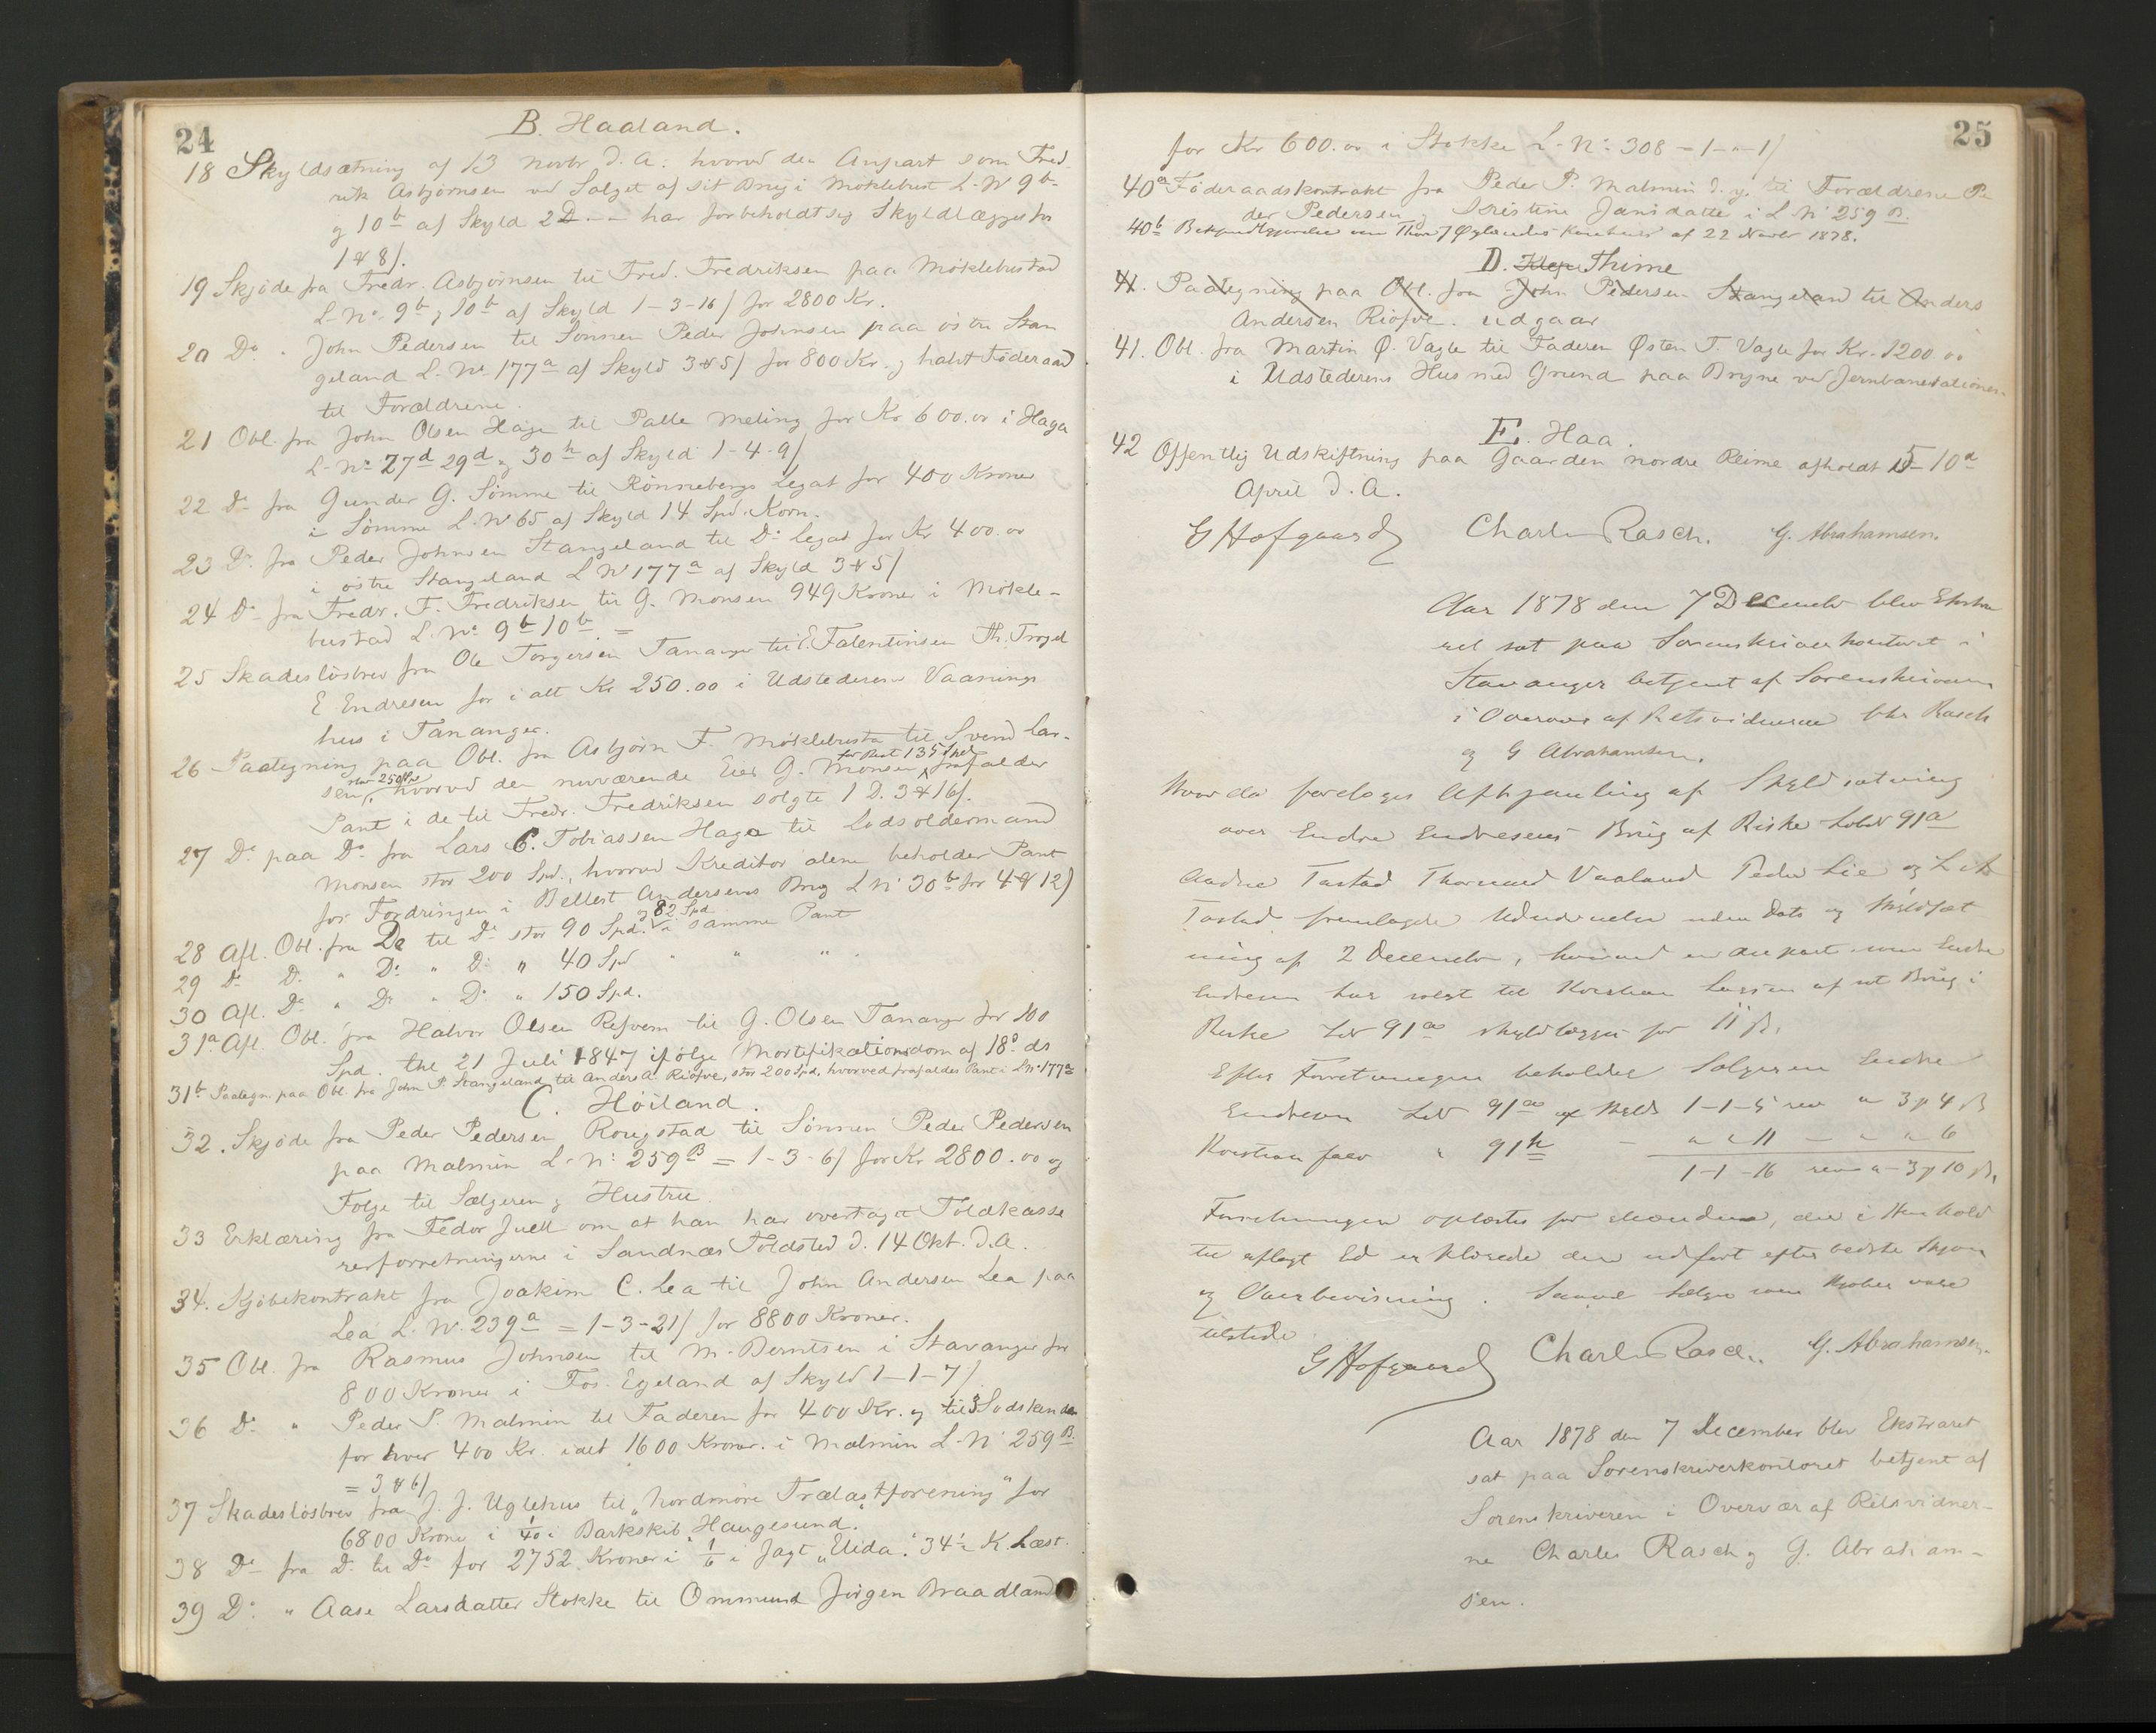 24
B. Haaland.
18 Skyldsætning af 13 Novbr d. A. hvorved den Anpart som Fred-
rik Asbjörnsen ved Salget af sit Brug i Möklebust L-No 9b
og 10b af Skyld 2D - - har forbeholdt sig Skyldlægges for
1 8/.
19 Skjöde fra Fredr. Asbjörnsen til Fred. Fredriksen paa Möklebustad
L-No. 9b, 10b af Skyld 1-3-16/ for 2800 Kr.
20 Do " John Pedersen til Sönnen Peder Johnsen paa östre Stan
geland L-No. 177a af Skyld 3 5/ for 800 Kr. og halvt Föderaad
til Forældrene.
21 Obl. fra John Olsen Haga til Palle Meling for Kr 600.00 i Haga
L-No 27d 29d og 30h af Skyld 1-4-9/
22 Do fra Gunder G. Sömme til Rönnebergs Legat for 400 Kroner
i Sömme L-No 65 af Skyld 14 Spd. Korn.
23 Do fra Peder Johnsen Stangeland til Do Legat for Kr 400.00
i östre Stangeland L No 177a af Skyld 3 5/
24 Do fra Fredr. F. Fredriksen til G. Monsen 949 Kroner i Mökle-
bustad L. No. 9b 10b. =
25 Skadeslösbrev fra Ole Torgersen Tananger til E. Falentinsen Th.
E Endresen for i alt Kr 250.00 i Udstederens Vaanings
hus i Tananger.
26 Paategning paa Obl. fra Asbjörn F. Möklebust til Svend Lar-
for Rest 135 Spd
sen, stor 250 hvorved den nuværende Eier G. Monsen frafalder
Pant i de til Fredr. Fredriksen solgte 1 D. 3 16/.
27 Do paa Do fra Lars C. Tobiassen Haga til Lodsoldermand
Monsen stor 200 Spd., hvorved Kreditor alene beholder Pant
for Fordringen i Bellest Andersens Brug L No 30b for 4 12/
og 82 Spd
28 Afl. Obl. fra Do til Do stor 90 Spd. i samme Pant
29 Do D. " Do " Do " 40 Spd " " " .
30 Afl. Do " Do " Do " 150 Spd.
31a. Afl. Obl. fra Halvor Olsen Refvem til G. Olsen Tananger for 100
Spd. thl 21 Juli 1847 ifölge Mortifikationsdom af 18 ds
31b Paategn. paa Obl. fra John P. Stangeland til Anders A. Riofve, stor 200 Spd, hvorved frafaldes Pant i L No 177a
C. Höiland.
32. Skjöde fra Peder Pedersen Rougstad til Sönnen Peder Pedersen
paa Malmin L-No. 259B = 1-3-6/ for Kr 2800.00 og
Folge til Sælgeren og Hustru.
33 Erklæring fra Fedor Juell om at han har overtaget Toldkasse
rerforretningerne i Sandnæs Toldsted d. 14 Okt. d.A.
34. Kjöbekontrakt fra Joakim C. Lea til John Andersen Lea paa
Lea L. No. 239a = 1-3-21/ for 8800 Kroner.
35 Obl. fra Rasmus Johnsen til M. Berntsen i Stavanger for
800 Kroner i Fos-Egeland af Skyld 1-1-7/
36 Do " Peder P. Malmin til Faderen for 400 Kr. og til 3 Södskende
for hver 400 Kr. i alt 1600 Kroner. i Malmin L-No 259B.
= 3 6/
37 Skadeslösbrev fra J. J. Uglehus til „Nordmöre Trælastforening" for
6800 Kroner i 1/40 i Barkskib „Haugesund.
38 Do fra Do til Do for 2752 Kroner i 1/6 i Jagt „Elida". 34½ K. Læst.
39 Do " Aase Larsdatter Stokke til Ommund Jörgen Braadland
25
for Kr 600.00 i Stokke L-No: 308 = 1-"-1/
40a Föderaadskontrakt fra Peder P. Malmin d. y. til Forældrene Pe
der Pedersen og Kristine Jansdatter i L No 259 B.
40b Bekjendtgjørelse om Thore J Øglændes Konkurs af 22 Novbr 1878.
D. Klep Thime
41. Paategning paa Obl. fra John Pedersen Stangeland til Anders
Andersen Riofve. udgaar
41. Obl. fra Martin Ø. Vagle til Faderen Østen T. Vagle for Kr. 1200.00
i Udstederens Hus med Grund paa Bryne ved Jernbanestationen.
E. Haa.
42 Offentlig Udskiftning paa Gaarden nordre Reime afholdt 5-10de
April d. A.
G Hofgaard Charles Rasch. G. Abrahamsen.
Aar 1878 den 7 December blev Ekstra
ret sat paa Sorenskriverkontoret i
Stavanger betjent af Sorenskriveren
i Overvær af Retsvidnerne Chr Rasch
og G Abrahamsen.
Hvor da foretoges Afhjemling af Skyldsætning
over Endre Endresens Brug af Riske LøbNo 91a
Tastad Thormod Vaaland Peder Lie og
Tastad fremlagde uden Dato og Skyldsæt
ning af 2 December, hvorved en Anpart som Endre
Endresen har solgt til Kristian Larsen af sit Brug i
Riske LNo 91a skyldlægges for 11 ß.
Efter Forretningen beholder Sælgeren Endre
Endresen LNo 91a af Skyld 1-1-5 rev " 3 p 4 ß
Kristian faar " 91h — " " 11 — " " 6
1-1-16 rev " - 3 p 10 ß.
Forretningen oplæstes for Mændene, der i Henhold
til aflagt Ed erklærede den udført efter bedste Skjøn
og Overbevisning. Saavel Sælger som Kjøber vare
tilstede.
G Hofgaard Charles Rasch. G. Abrahamsen.
Aar 1878 den 7 December blev Ekstraret
sat paa Sorenskriverkontoret betjent af
Sorenskriveren i Overvær af Retsvidner-
ne Charles Rasch og G. Abraham-
sen.